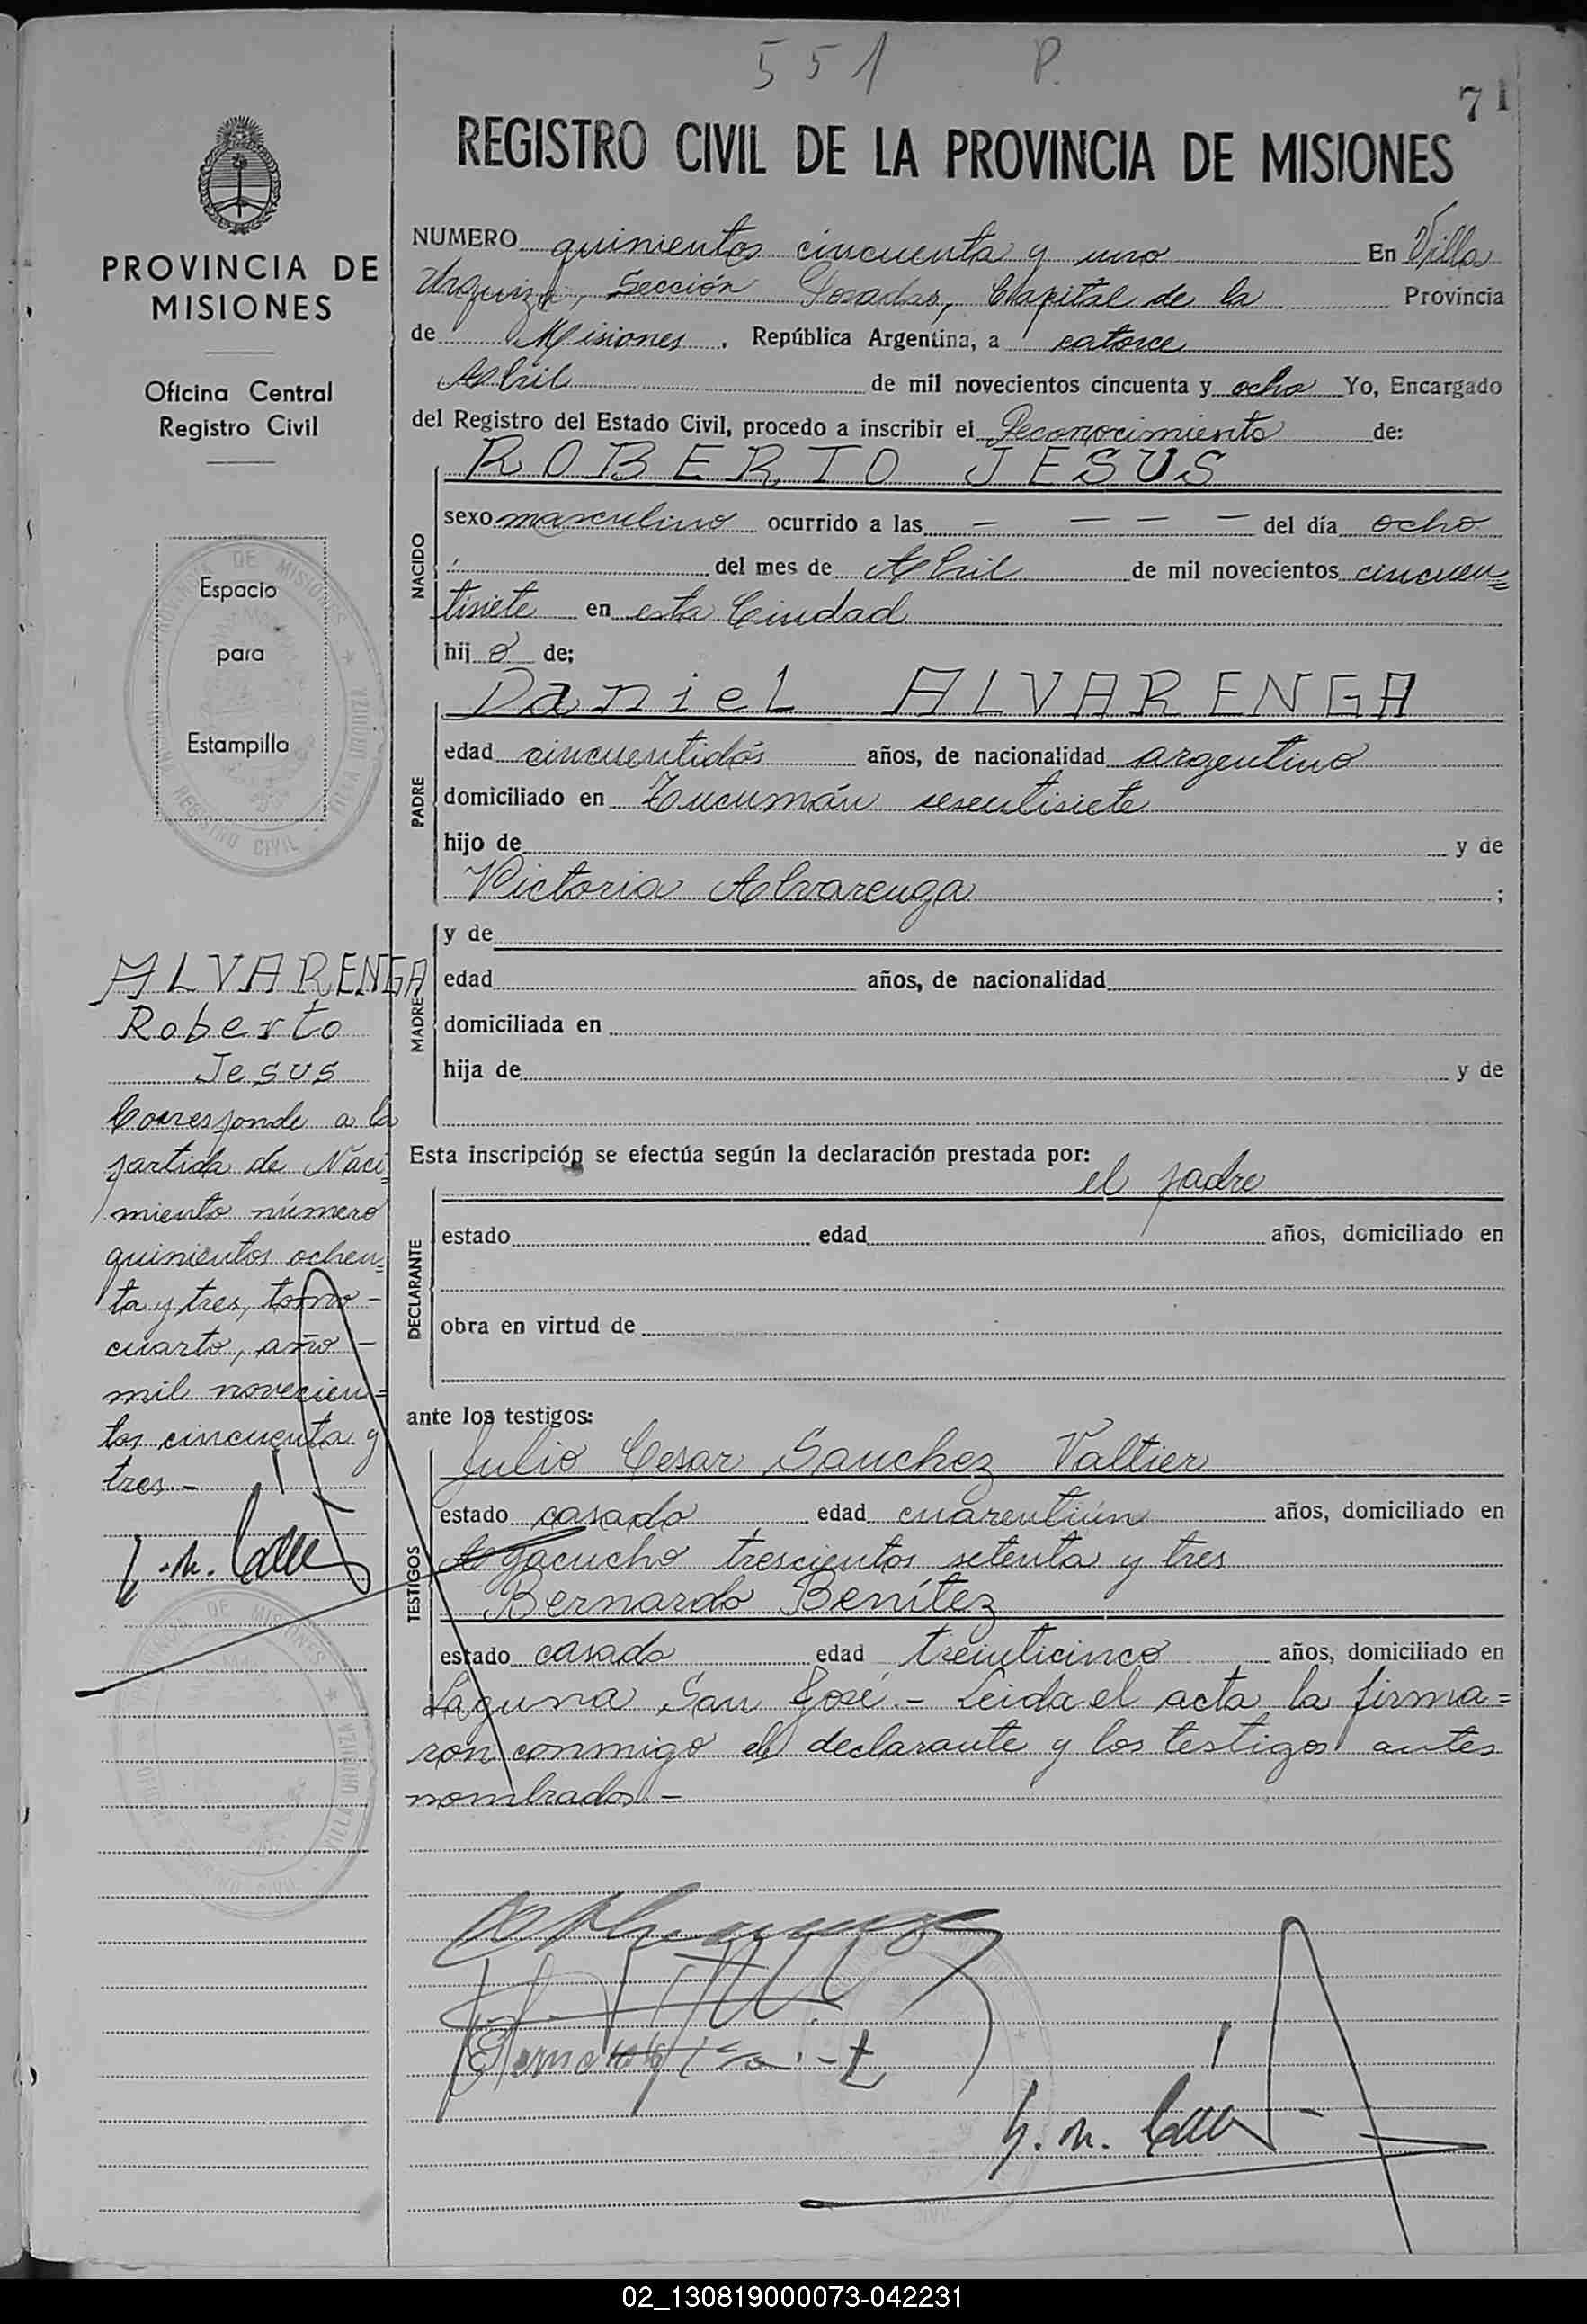 551 P.
71
REGISTRO CIVIL DE LA PROVINCIA DE MISIONES
PROVINCIA DE
MISIONES
Oficina Central
Registro Civil
Espacio
para
Estampilla
ALVARENGA
Roberto
Jesus
Corresponde a la
partida de Naci=
miento número
quinientos ochen=
ta y tres, tomo -
cuarto, año -
mil novecien=
tos cincuenta y
tres.-
NUMERO quinientos cincuenta y uno En Villa
Urquiza, Sección Posadas, Capital de la Provincia
de Misiones. República Argentina, a catorce
Abril de mil novecientos cincuenta y ocho Yo, Encargado
del Registro del Estado Civil, procedo a inscribir el Reconocimiento de:
ROBERTO JESUS
NACIDO
sexo masculino ocurrido a las — — — — del día ocho
del mes de Abril de mil novecientos cincuen=
tisiete en esta Ciudad
hijo de;
Daniel ALVARENGA
PADRE
edad cincuentidós años, de nacionalidad argentino
domiciliado en Tucumán sesentisiete
hijo de y de
Victoria Alvarenga ;
MADRE
y de
edad años, de nacionalidad
domiciliada en
hija de y de
Esta inscripción se efectúa según la declaración prestada por:
el padre
DECLARANTE
estado edad años, domiciliado en
obra en virtud de
ante los testigos:
Julio Cesar Sanchez Valtier
TESTIGOS
estado casado edad cuarentiún años, domiciliado en
Ayacucho trescientos setenta y tres
Bernardo Benítez
estado casado edad treinticinco años, domiciliado en
Laguna San José.- Leida el acta la firma=
ron conmigo el declarante y los testigos antes
nombrados.-
PROVINCIA DE MISIONES * VILLA URQUIZA
REGISTRO CIVIL
02_130819000073-042231